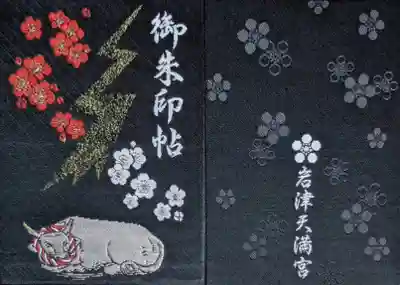 御朱印帖
岩津天満宮